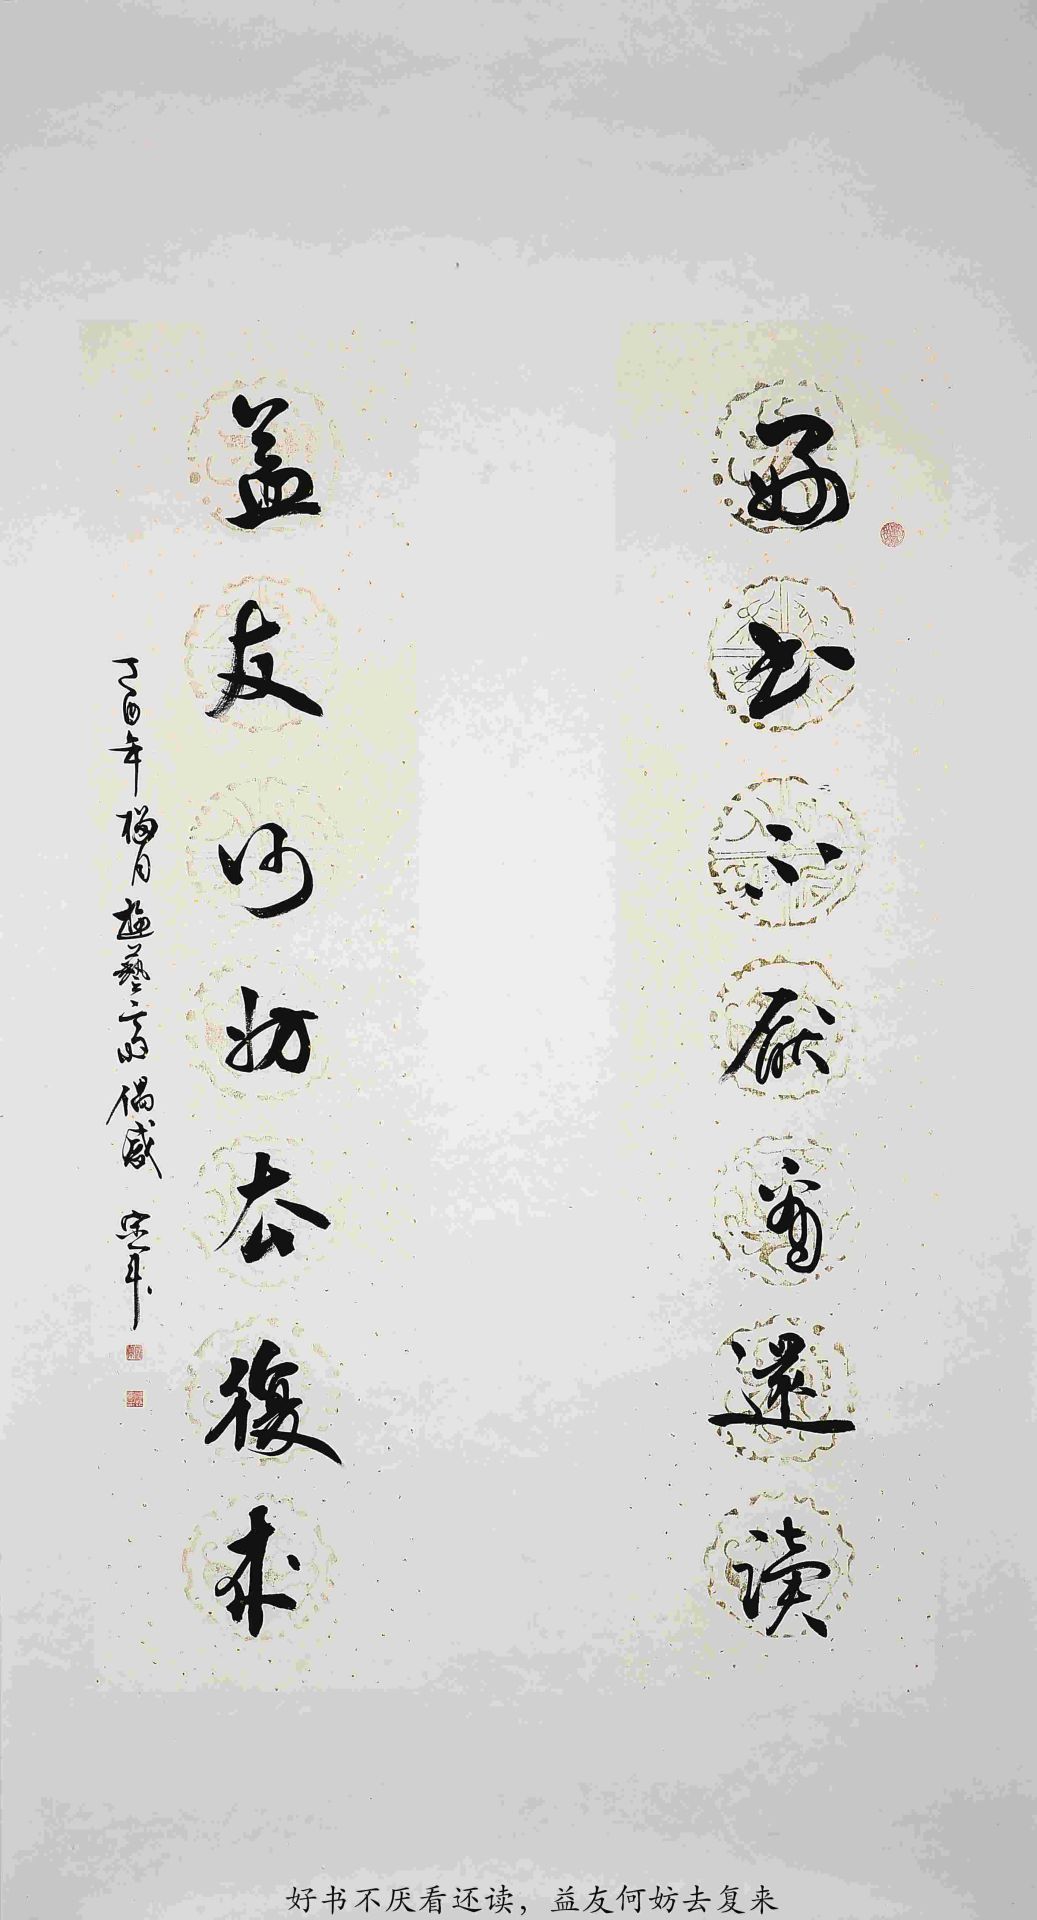 好书不厌看还读
益友何妨去復来
丁酉年梅月遊藝斋時偶感
好书不厌看还读，益友何妨去复来